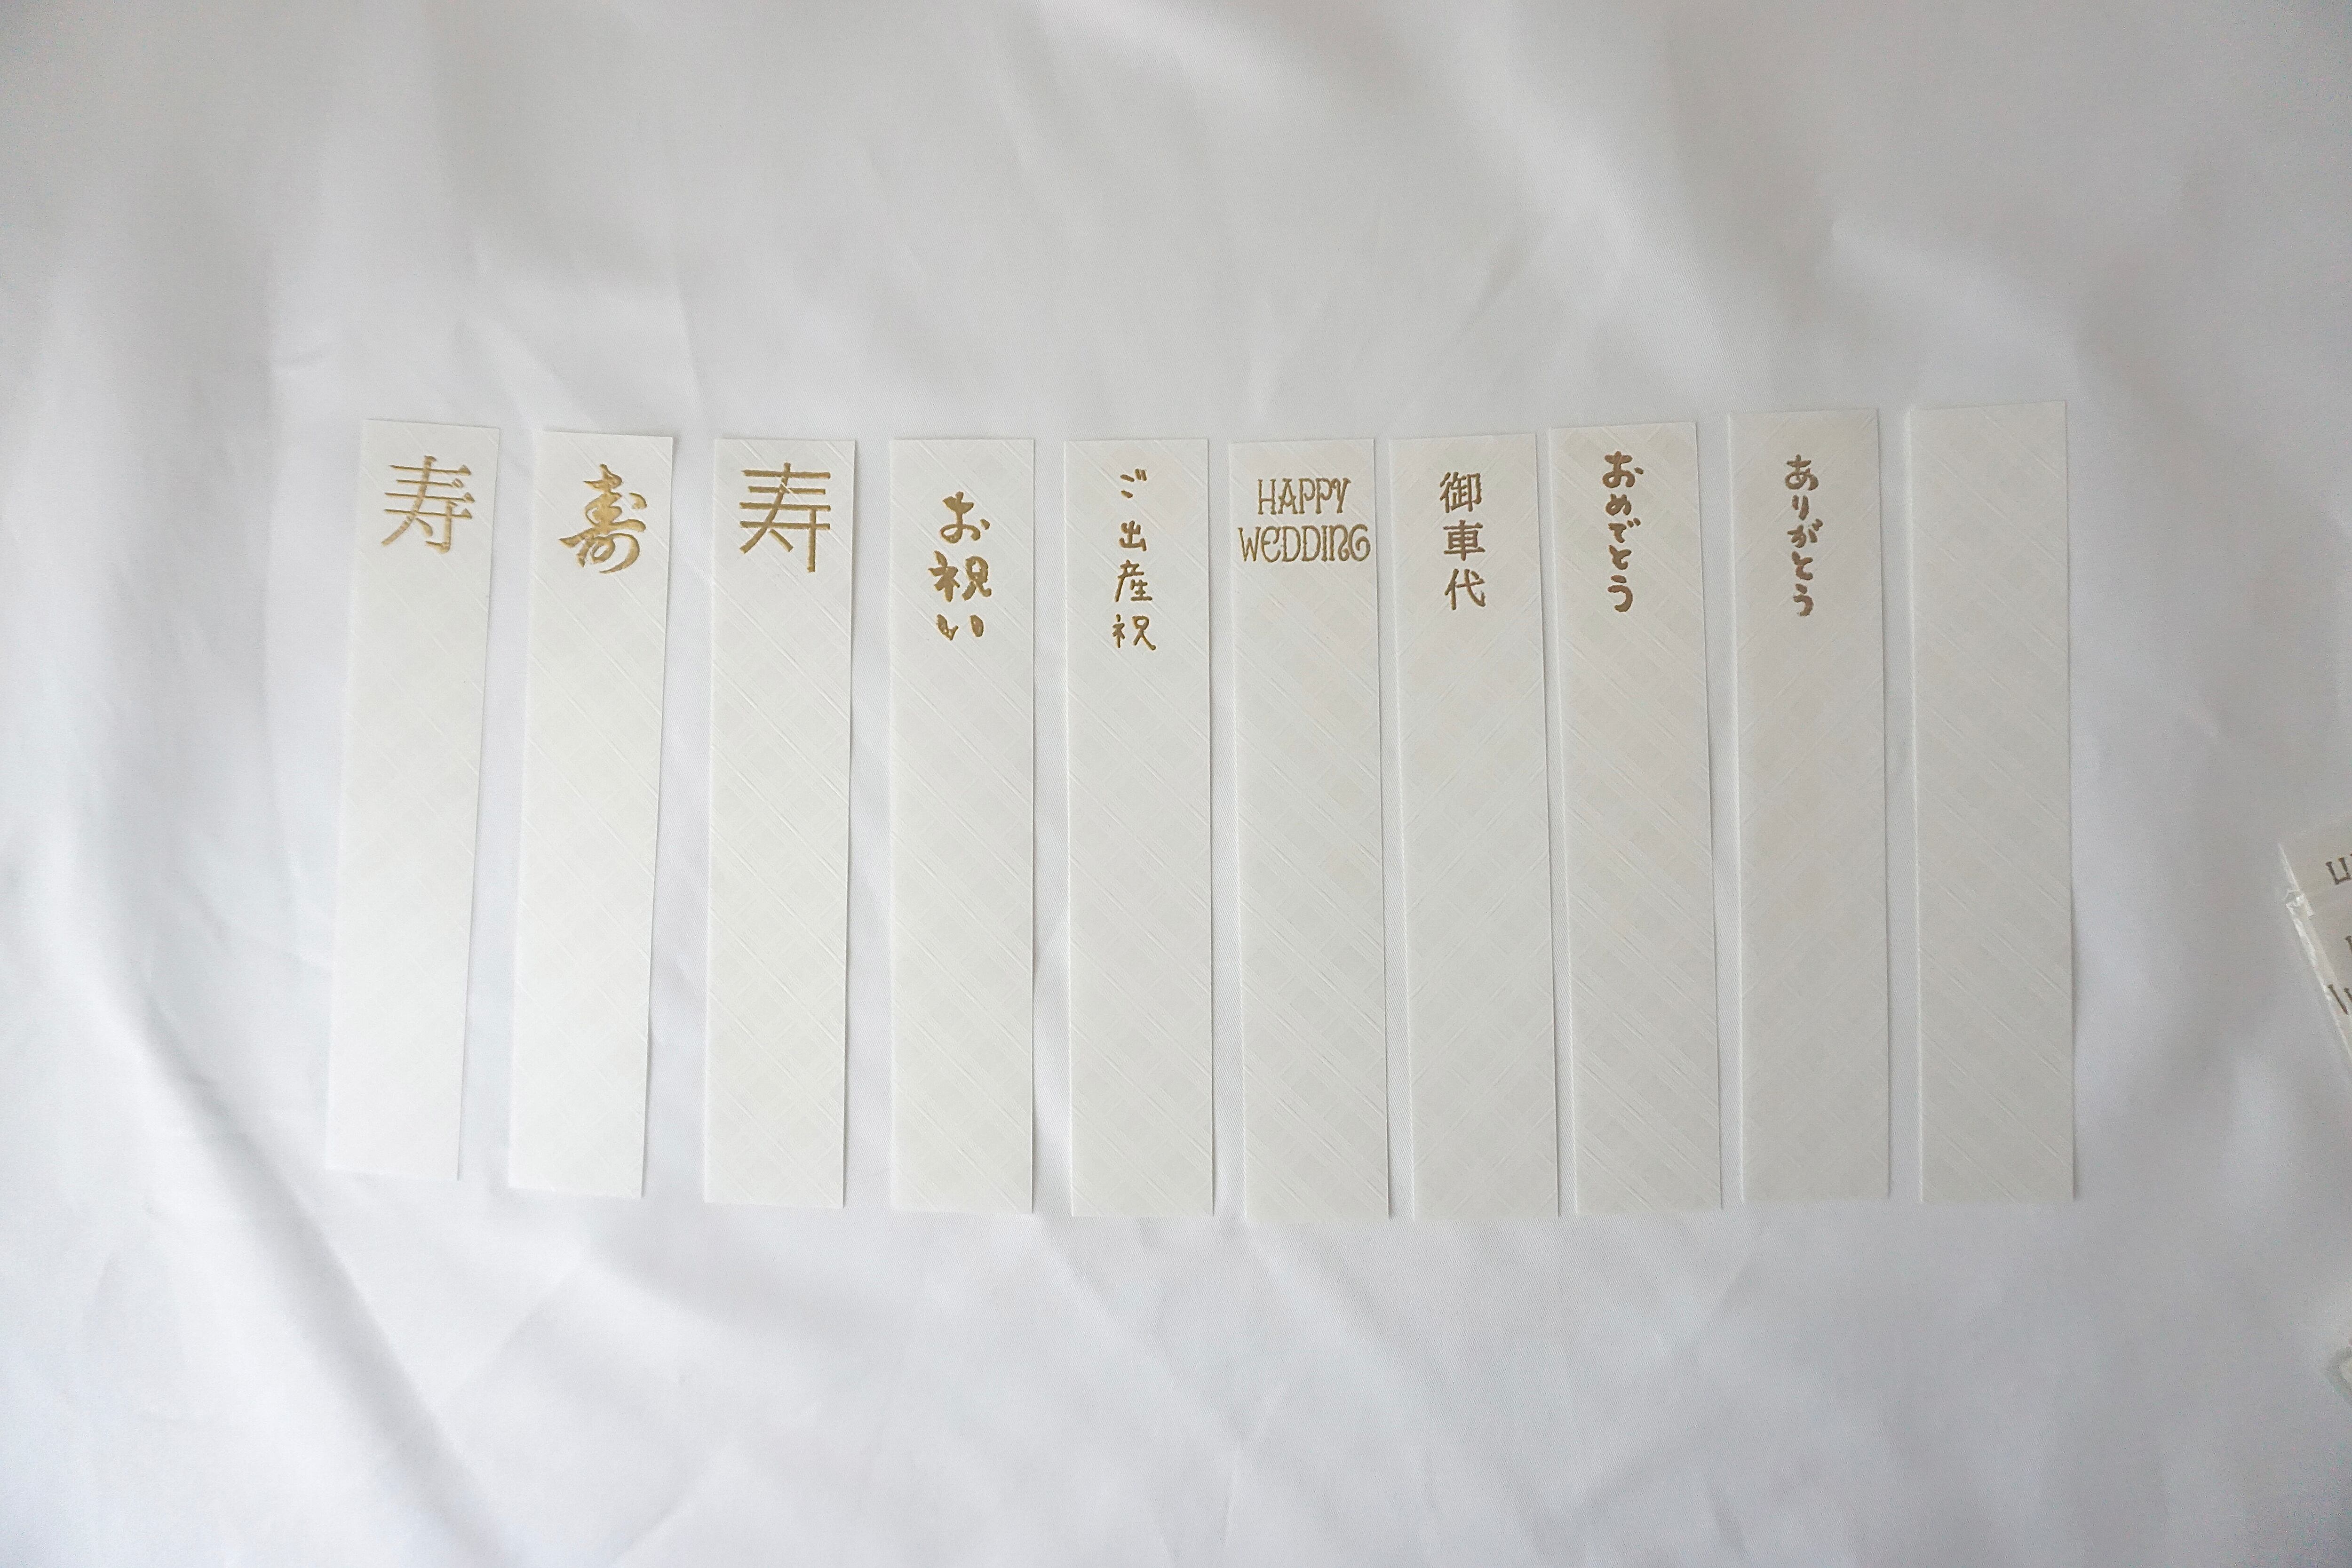 寿
壽
寿
お祝い
ご出産祝
HAPPY
WEDDING
御車代
おめでとう
ありがとう